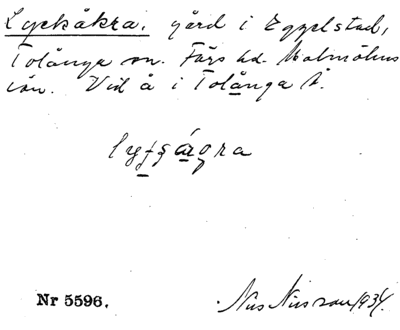 Lyckåkra. gård i Eggelstad,
Tolånga sn. Färs hd. Malmöhus
län. Vid å i Tolånga
lyfságra
Nr 5596.
Nils Nilsson 1934.